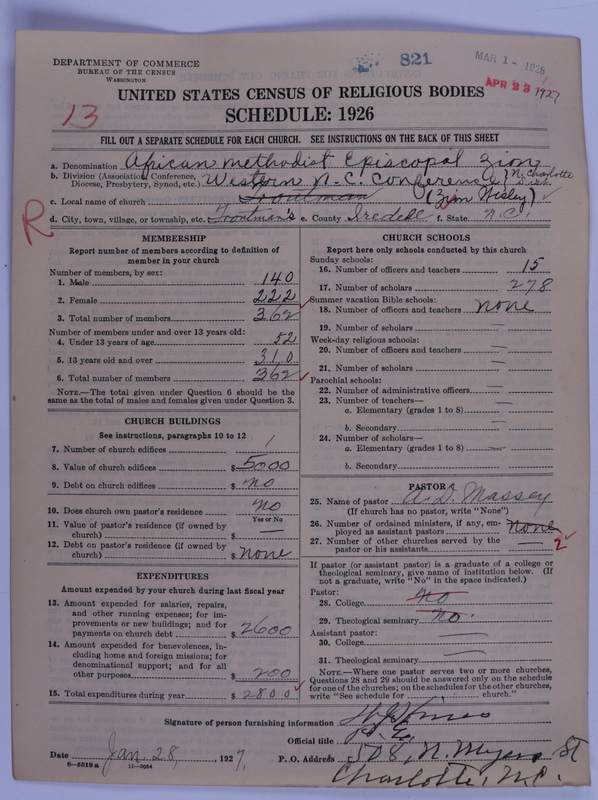 DEPARTMENT OF COMMERCE
BUREAU OF THE CENSUS
WASHINGTON
821
MAR 1 - 1926
APR 23 1927
13
UNITED STATES CENSUS OF RELIGIOUS BODIES
SCHEDULE: 1926
FILL OUT A SEPARATE SCHEDULE FOR EACH CHURCH. SEE INSTRUCTIONS ON THE BACK OF THIS SHEET
a. Denomination African Methodist Episcopal Zion
b. Division (Association, Conference, Diocese, Presbytery, Synod, etc.) Western N.C. Conference (N. Charlotte
c. Local name of church Troutman (Zion Wesley)
d. City, town, village, or township, etc. Troutman's e. County Iredell f. State N.C.
R
MEMBERSHIP
Report number of members according to definition of member in your church
Number of members, by sex:
1. Male 140
2. Female 222
3. Total number of members 362
Number of members under and over 13 years old:
4. Under 13 years of age 52
5. 13 years old and over 310
6. Total number of members 362
NOTE.—The total given under Question 6 should be the same as the total of males and females given under Question 3.
CHURCH BUILDINGS
See instructions, paragraphs 10 to 12
7. Number of church edifices 1
8. Value of church edifices $ 5000
9. Debt on church edifices $ no
10. Does church own pastor's residence no
Yes or No
11. Value of pastor's residence (if owned by church) $ —
12. Debt on pastor's residence (if owned by church) $ none
EXPENDITURES
Amount expended by your church during last fiscal year
13. Amount expended for salaries, repairs, and other running expenses; for improvements or new buildings; and for payments on church debt $ 2600
14. Amount expended for benevolences, including home and foreign missions; for denominational support; and for all other purposes $ 200
15. Total expenditures during year $ 2800
CHURCH SCHOOLS
Report here only schools conducted by this church
Sunday schools:
16. Number of officers and teachers 15
17. Number of scholars 278
Summer vacation Bible schools:
18. Number of officers and teachers none
19. Number of scholars —
Week-day religious schools:
20. Number of officers and teachers —
21. Number of scholars —
Parochial schools:
22. Number of administrative officers —
23. Number of teachers—
a. Elementary (grades 1 to 8) —
b. Secondary —
24. Number of scholars—
a. Elementary (grades 1 to 8) —
b. Secondary —
PASTOR
25. Name of pastor A. D. Massey
(If church has no pastor, write "None")
26. Number of ordained ministers, if any, employed as assistant pastors none
27. Number of other churches served by the pastor or his assistants — 2
If pastor (or assistant pastor) is a graduate of a college or theological seminary, give name of institution below. (If not a graduate, write "No" in the space indicated.)
Pastor:
28. College no
29. Theological seminary no.
Assistant pastor:
30. College —
31. Theological seminary —
NOTE.—Where one pastor serves two or more churches, Questions 28 and 29 should be answered only on the schedule for one of the churches; on the schedules for the other churches, write "See schedule for church."
Signature of person furnishing information
Official title P. E.
Date Jan. 28, 1927, P. O. Address 508, N. Myers St
Charlotte, N.C.
8-5519a 11-9054